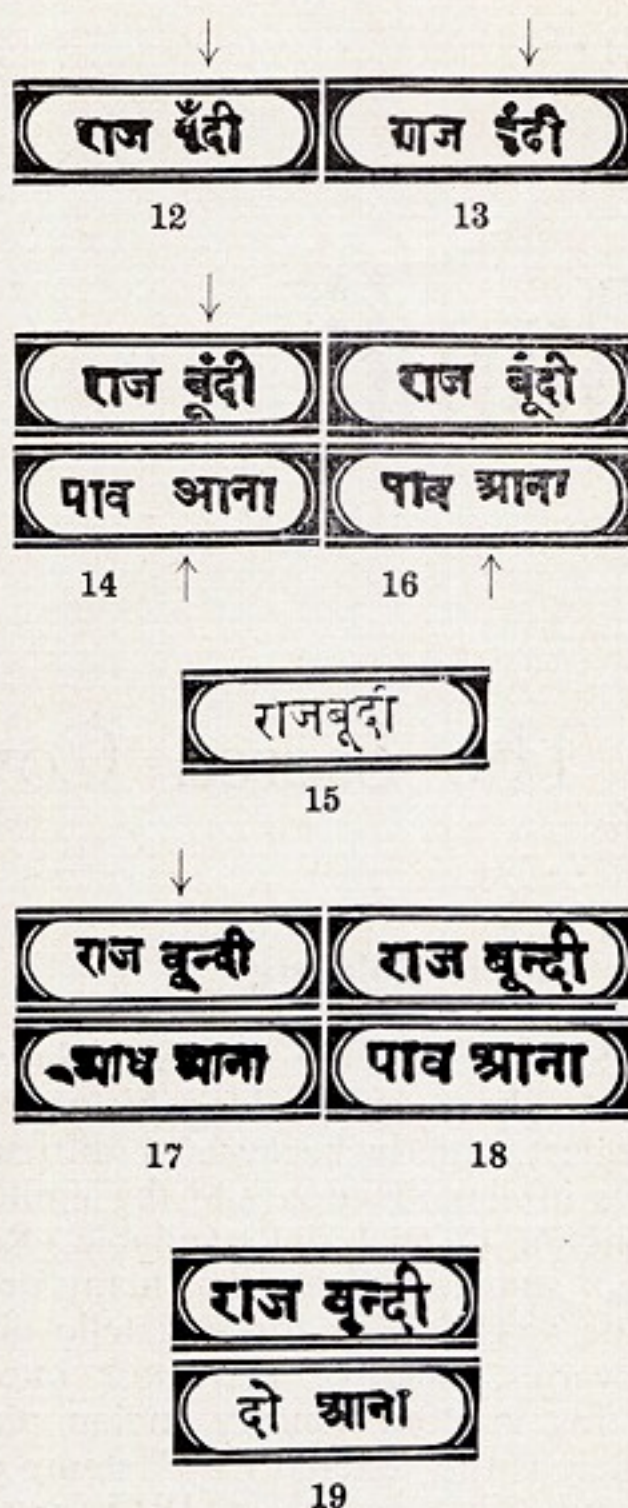 राज बूँदी राज ईंदी
12 13
राज बूंदी राज बूंदी
पाव आना पाव आना
14 16
राजबूदी
15
राज वून्दी राज बून्दी
आध आना पाव आना
17 18
राज वुन्दी
दो आना
19